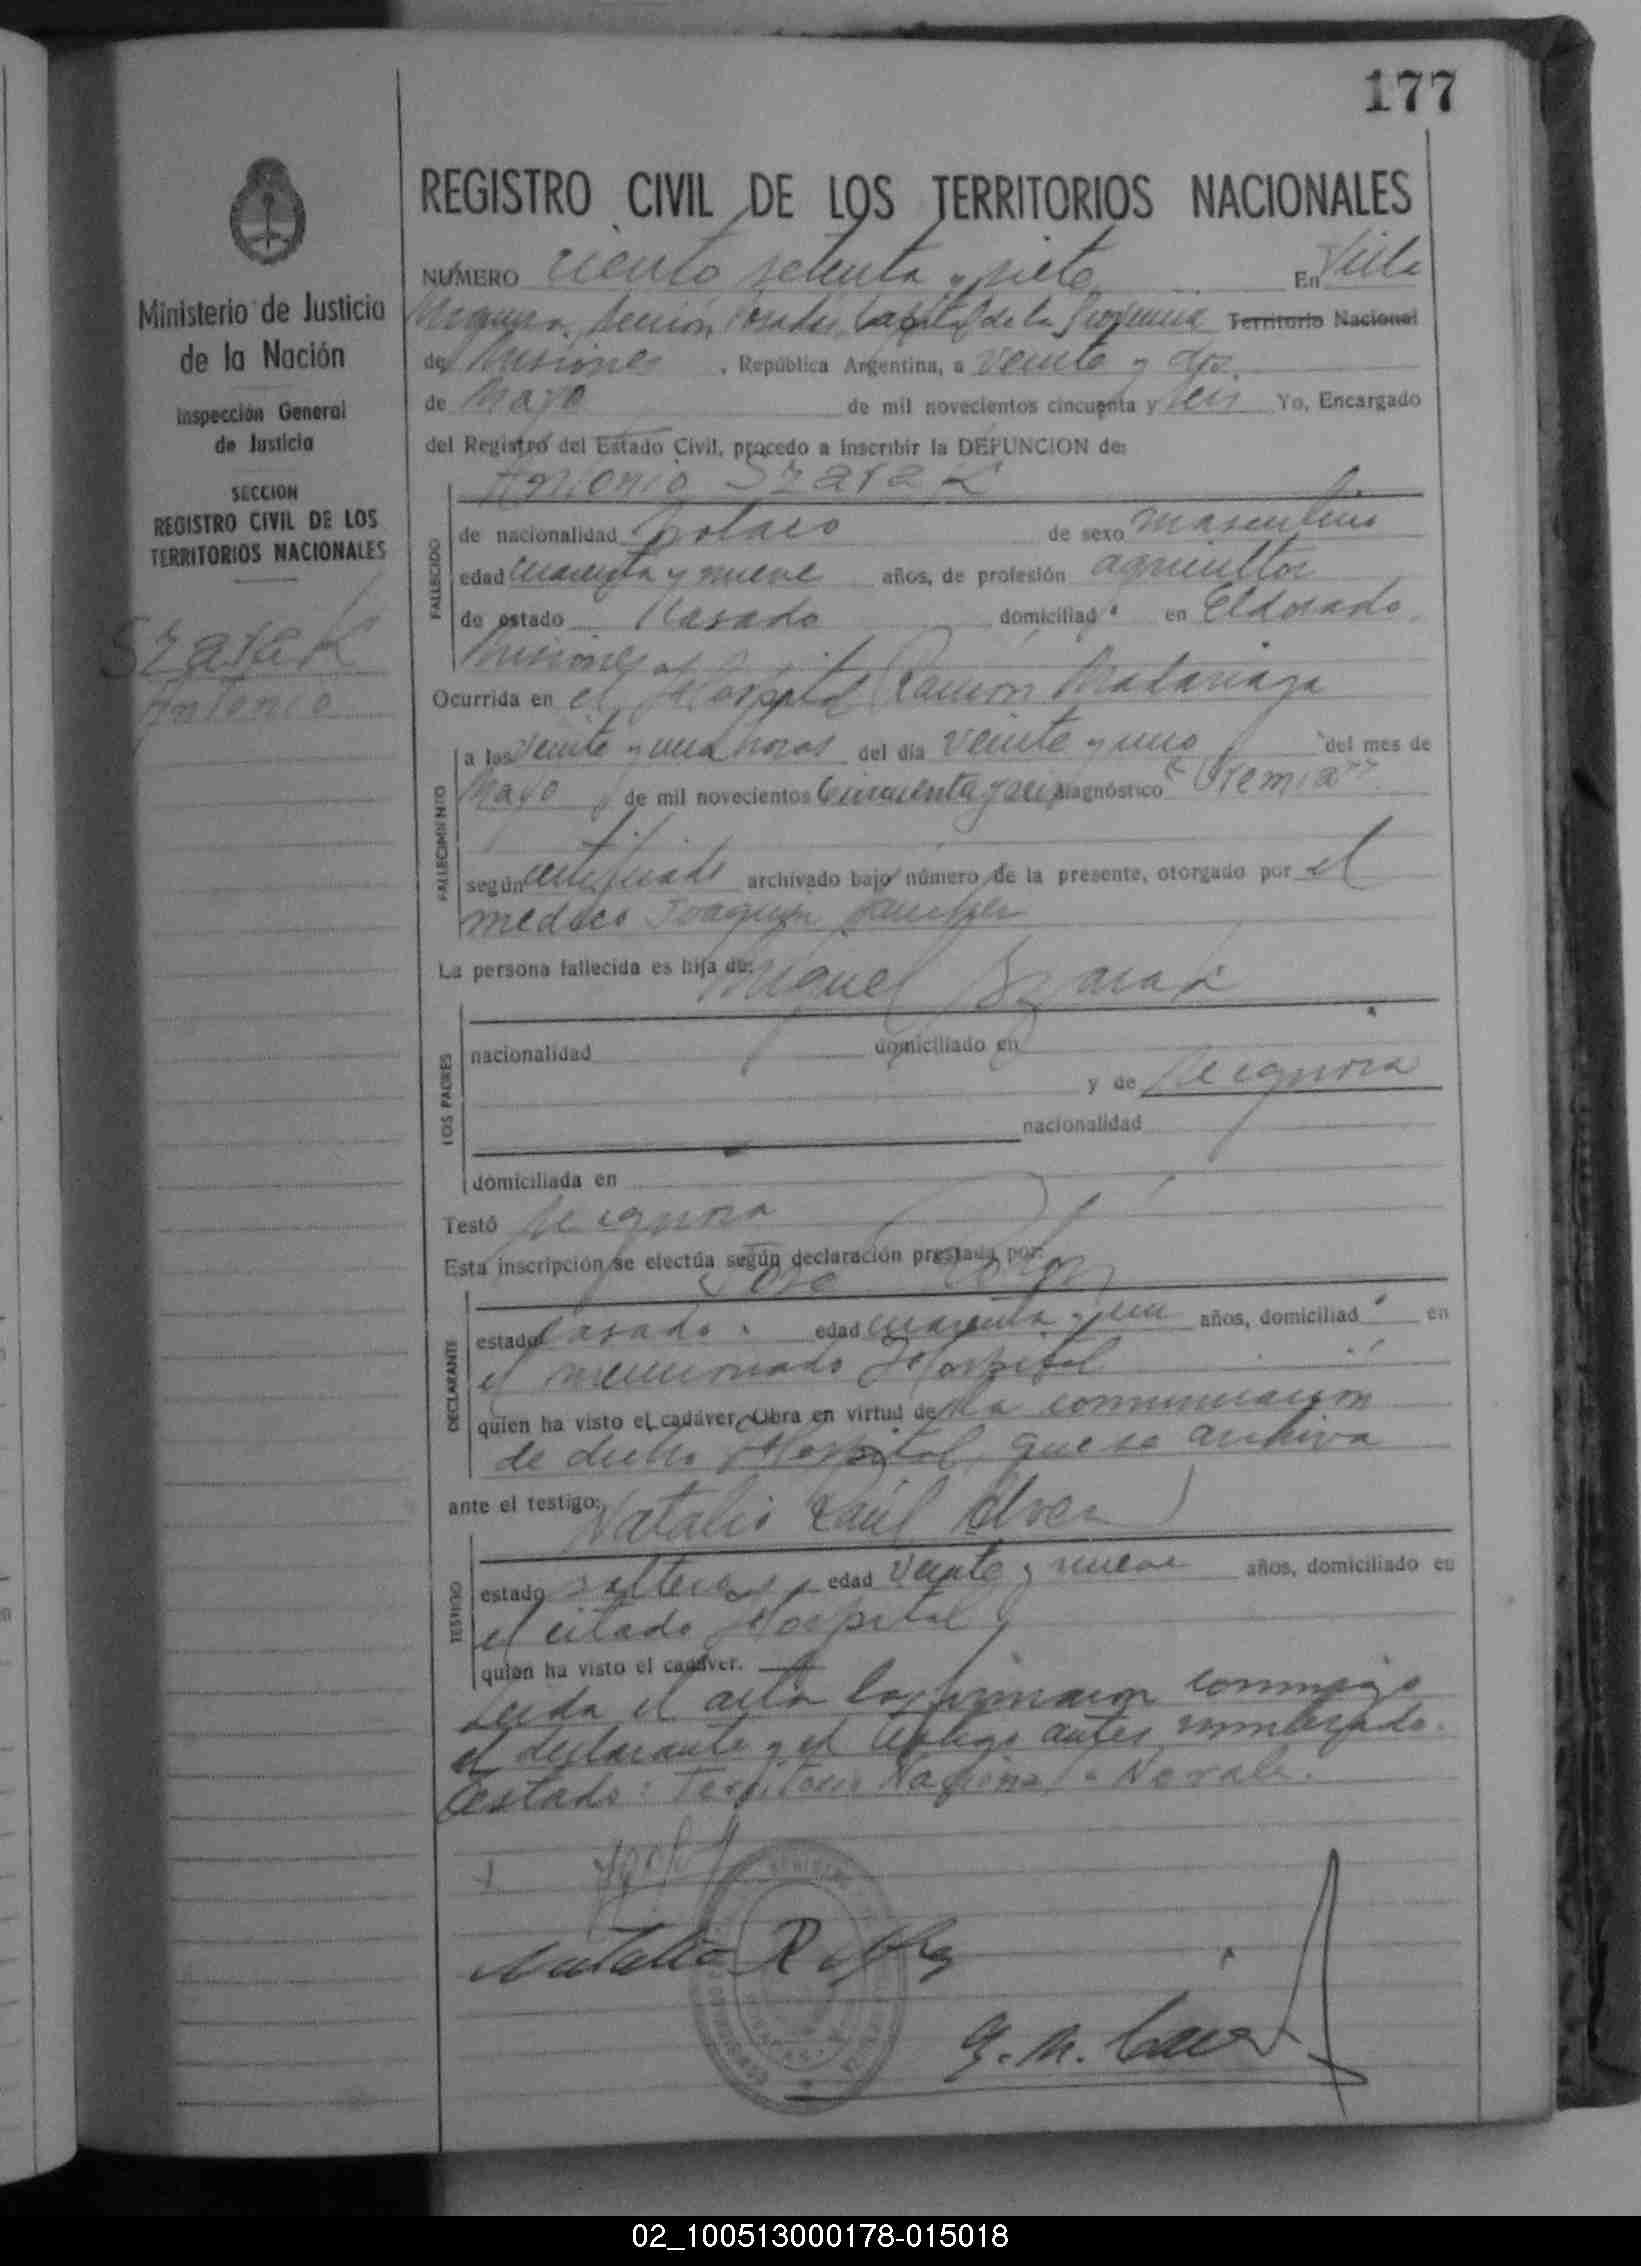 177
REGISTRO CIVIL DE LOS TERRITORIOS NACIONALES
Ministerio de Justicia
de la Nación
Inspección General
de Justicia
SECCION
REGISTRO CIVIL DE LOS
TERRITORIOS NACIONALES
Szarak
Antonio
NÚMERO ciento setenta y siete En Villa
Sección Posadas, Capital de la Provincia Territorio Nacional
de Misiones, República Argentina, a veinte y dos
de Mayo de mil novecientos cincuenta y seis Yo, Encargado
del Registro del Estado Civil, procedo a inscribir la DEFUNCION de:
Antonio Szarak
FALLECIDO
de nacionalidad Polaco de sexo masculino
edad cuarenta y nueve años, de profesión agricultor
de estado Casado domiciliado en Eldorado,
Misiones
Ocurrida en el Hospital Ramón Madariaga
FALLECIMIENTO
a las veinte y una horas del día veinte y uno del mes de
Mayo de mil novecientos Cincuenta y seis diagnóstico "Uremia"
según certificado archivado bajo número de la presente, otorgado por el
medico Joaquin Sanchez
La persona fallecida es hija de: Miguel Szarak
LOS PADRES
nacionalidad domiciliado en
y de Se ignora
nacionalidad
domiciliada en
Testó Se ignora
Esta inscripción se efectúa según declaración prestada por:
José
DECLARANTE
estado casado. edad cuarenta y un años, domiciliado en
el mencionado Hospital
quien ha visto el cadáver. Obra en virtud de la comunicacion
de dicho Hospital, que se archiva
ante el testigo: Natalio Raúl Alvez
TESTIGO
estado soltero, edad veinte y nueve años, domiciliado en
el citado Hospital
quien ha visto el cadáver.
Leida el acta la firmaron conmigo
el declarante y el testigo antes nombrado.
Testado: Territorio Nacional - No vale.
Natalio R
02_100513000178-015018